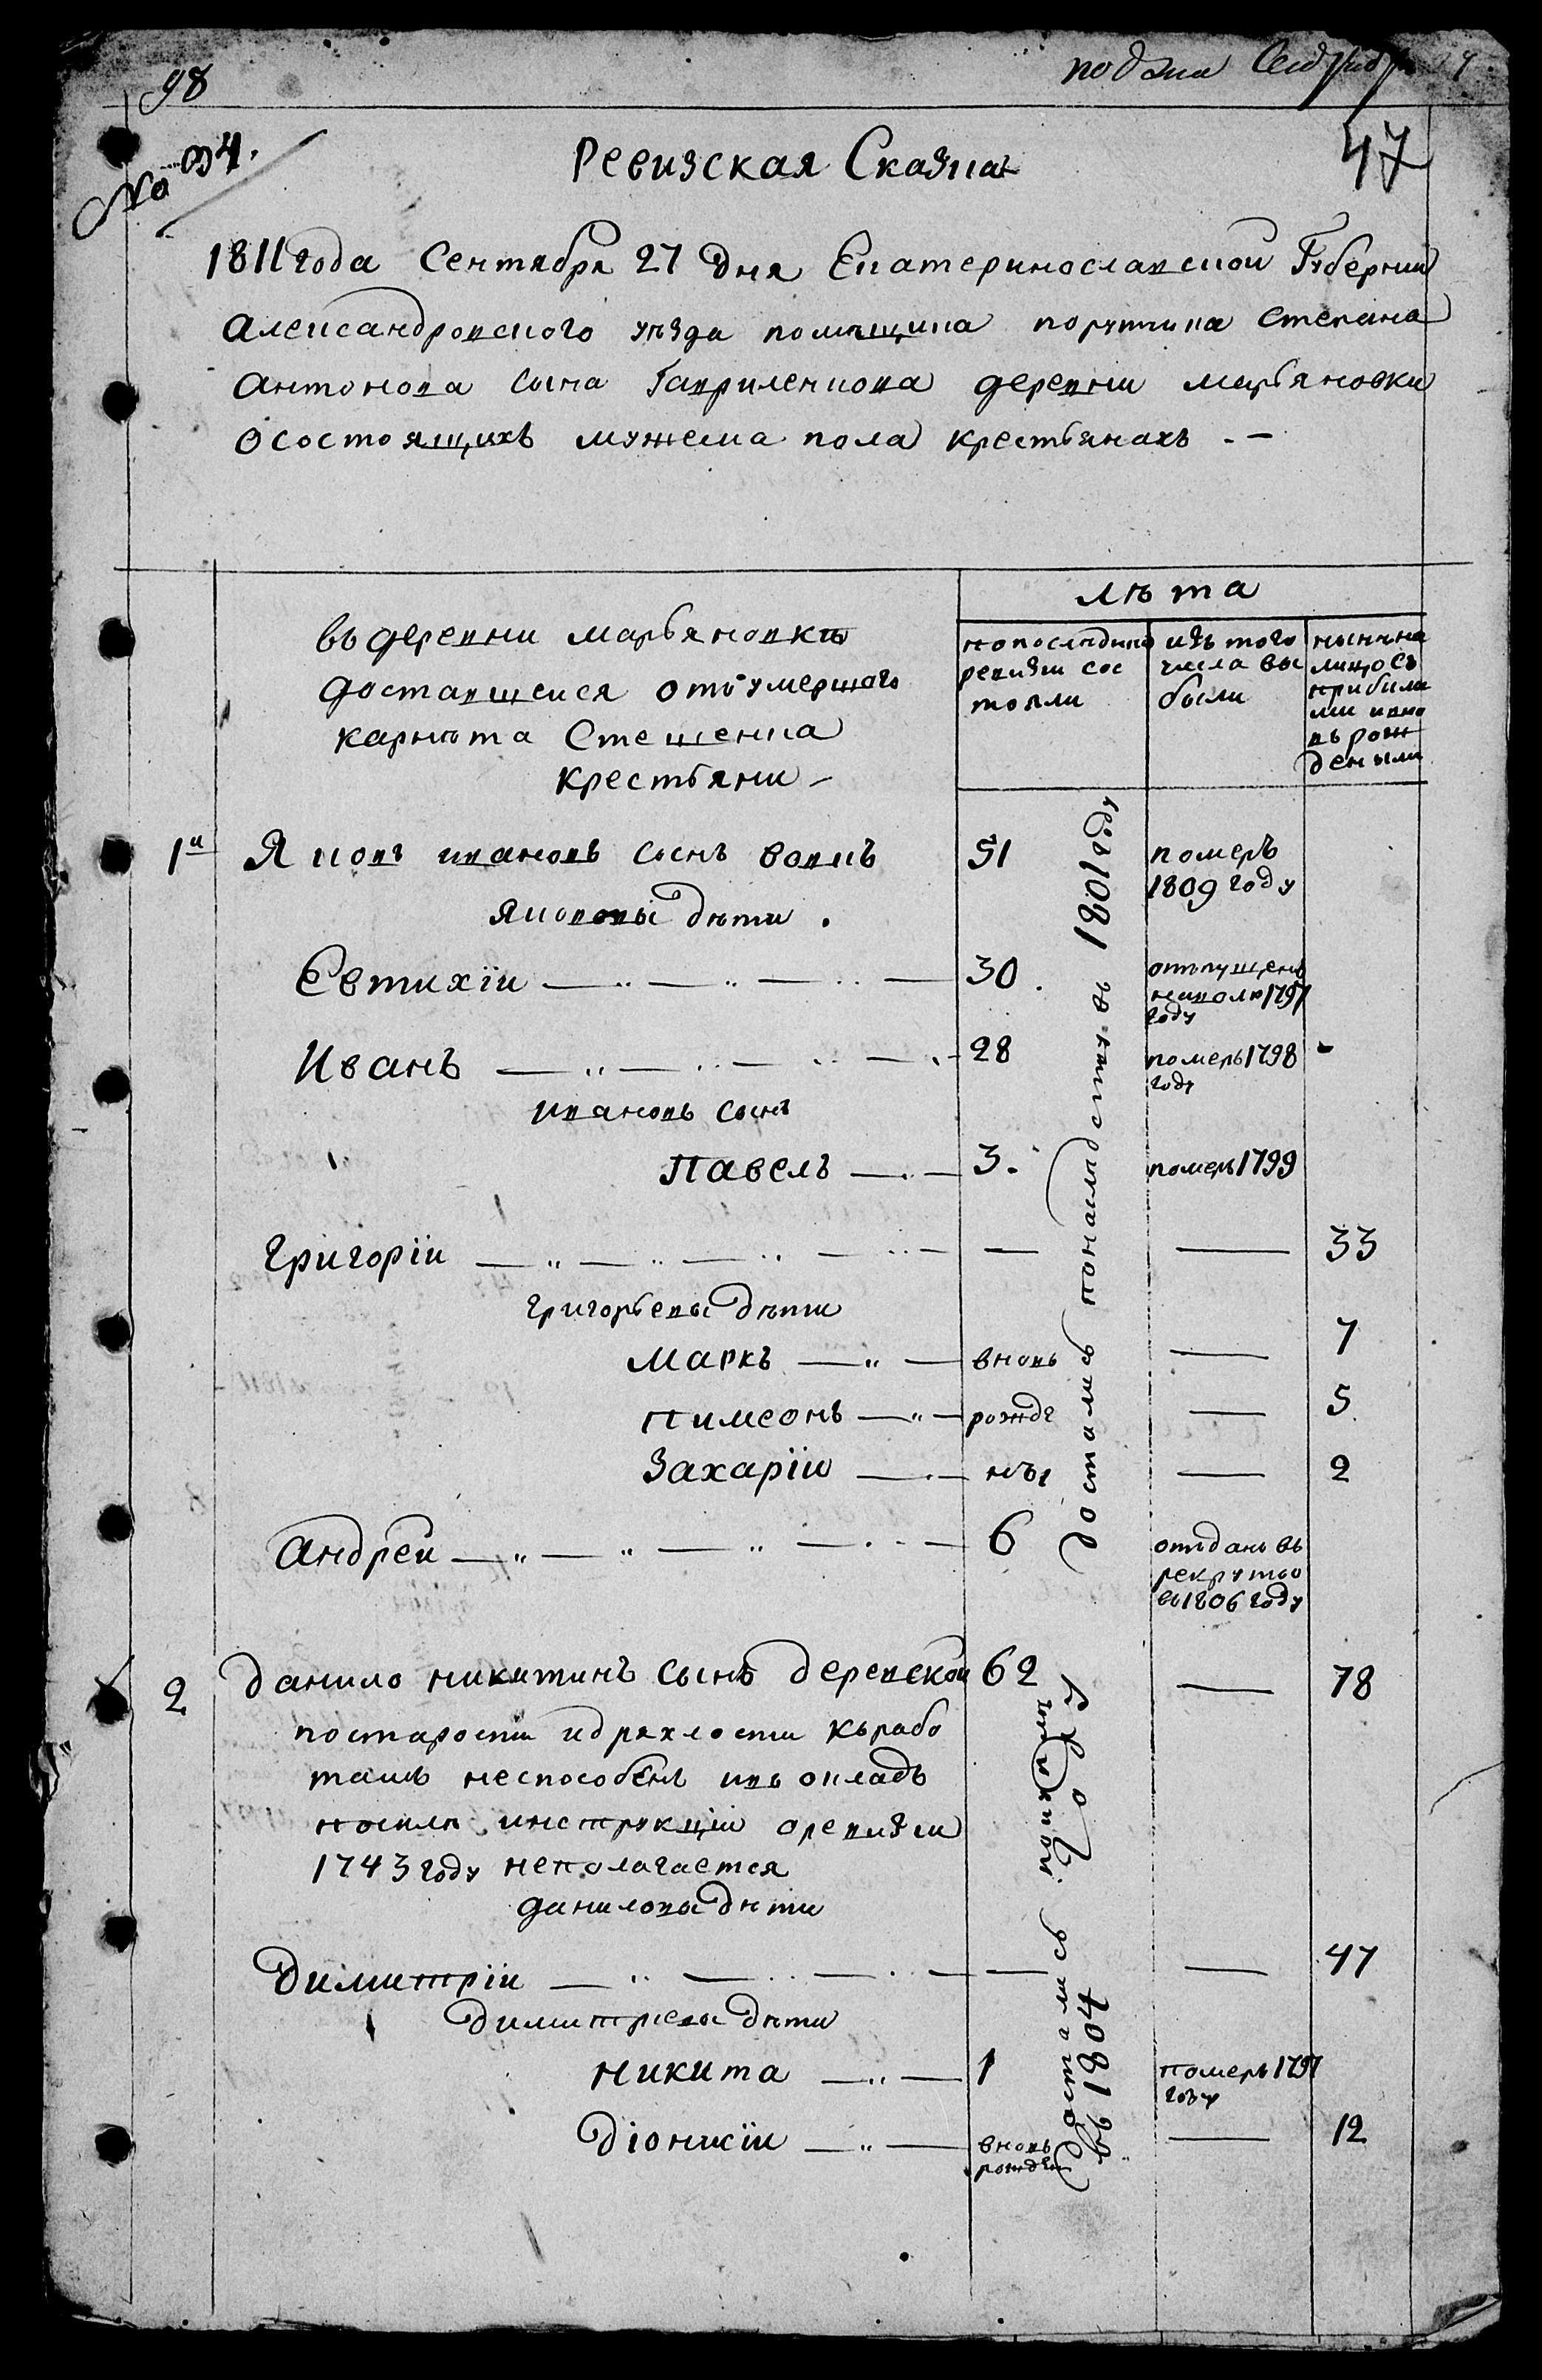 98
подана Сентября
№ 94.
47
Ревизская Сказка
1811 года Сентября 27 дня Екатеринославской Губернии
Александровского уѣзда помѣщика порутчика Степана
Антонова сына Гавриленкова деревни марьяновки
О состоящихъ мужеска пола крестьянахъ . —
въ деревни марьяновкѣ
доставшейся отъ умершаго
карнѣта Стешенка
крестьяни —
лѣта
по последнѣй
ревизии сос
тояли
изъ того
числа вы
были
нынѣ на
лицо съ
прибылы
ми и вно
въ рож
деными
1й Яковъ ивановъ сынъ вовкъ 51 померъ
1809 году
Якововы дѣти .
Евтихїи 30. отпущенъ
на волю 1797
году
Иванъ 28 померъ 1798
году
ивановъ сынъ
Павелъ 3. померъ 1799
Григорїи — — 33
григорьевы дѣти
Маркъ вновь — 7
пимеонъ рожде — 5
Захарїи ны — 2
Андреи 6 отъданъ въ
рекруты
въ 1806 году
достались по наследству въ 1801 году
2 данило никитинъ сынъ деревской 62 — 78
по старости и дряхлости къ рабо
тамъ неспособенъ и въ окладъ
по силѣ инструкцїи о ревизии
1743 году неполагается
даниловы дѣти
Димитрїи — — 47
Димитреевы дѣти
Никита 1 померъ 1797
году
Дїонисїи вновь
рожден — 12
достались
1804